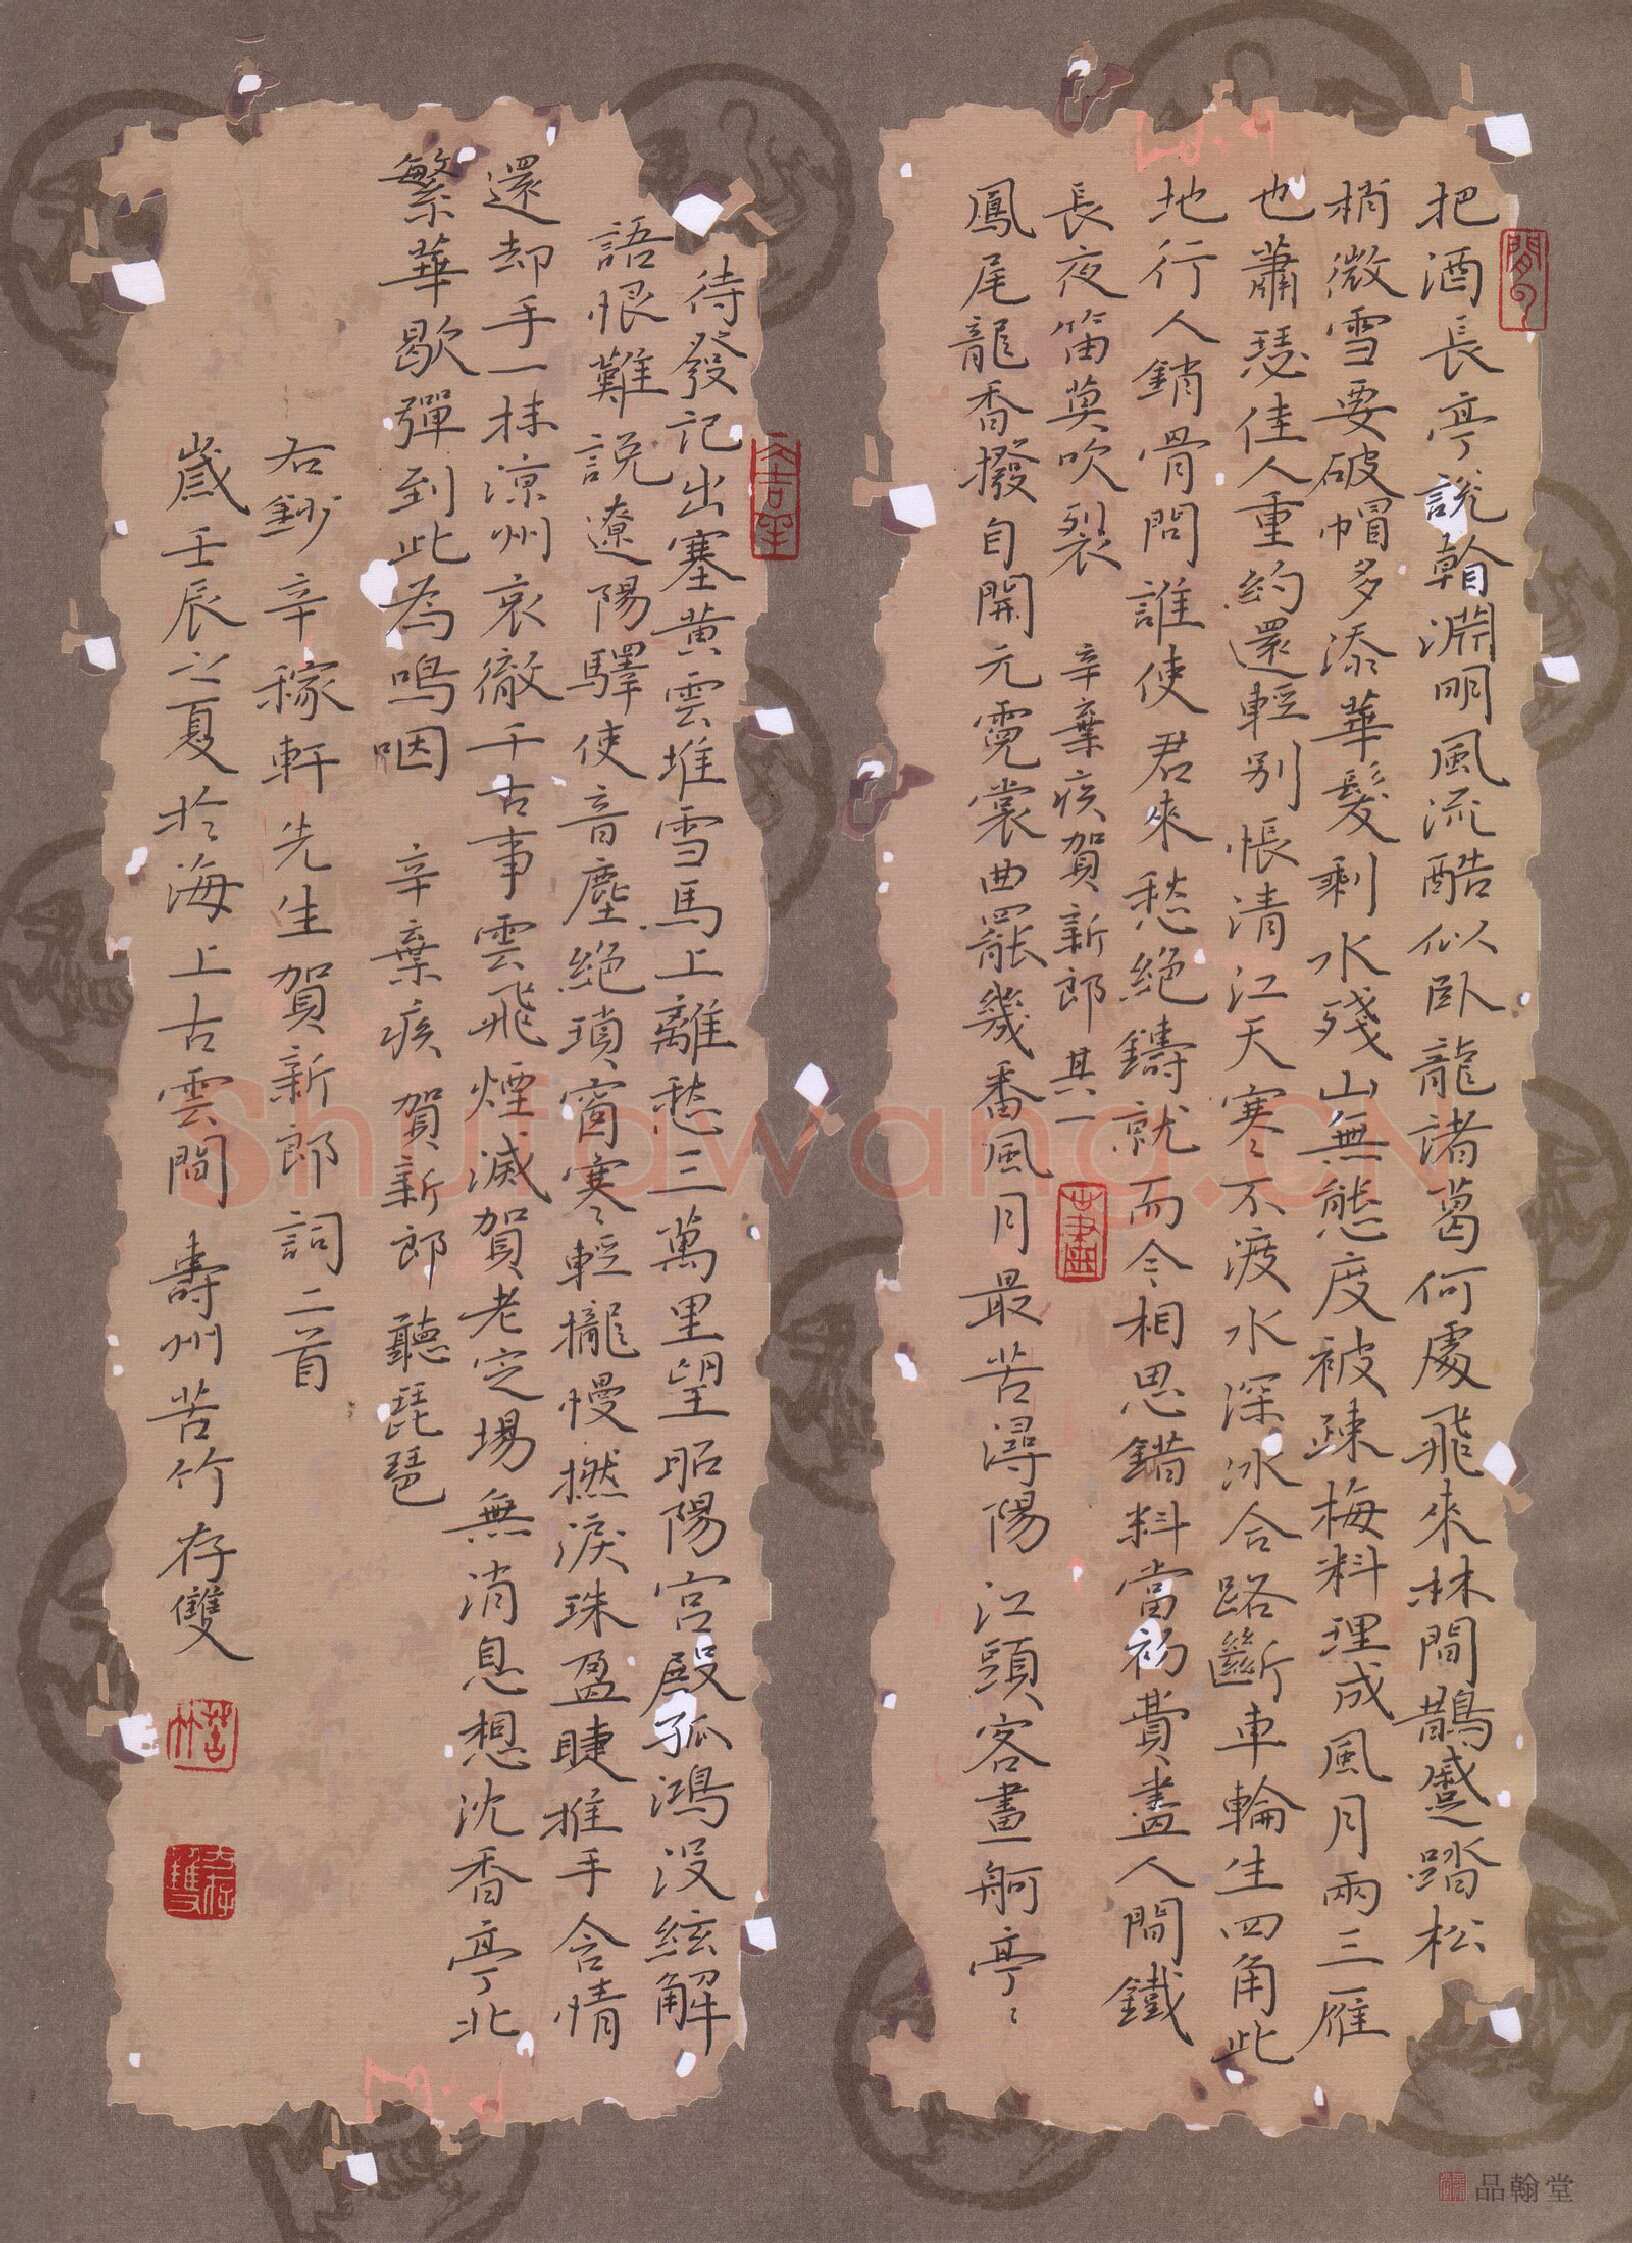 把酒長亭說看淵明風流酷似臥龍諸葛何處飛來林間鵲蹙踏松
梢微雪要破帽多添華髮剩水殘山無態度被疎梅料理成風月兩三雁
也蕭瑟佳人重約還輕別悵清江天寒不渡水深冰合路斷車輪生四角此
地行人銷骨問誰使君來愁絕鑄就而今相思錯料當初費盡人間鐵
長夜笛莫吹裂 辛棄疾賀新郎 其一
鳳尾龍香撥自開元霓裳曲罷幾番風月最苦潯陽江頭客畫舸亭〻
待發記出塞黃雲堆雪馬上離愁三萬里望昭陽宮殿孤鴻沒絃解
語恨難說遼陽驛使音塵絕瑣窗寒〻輕攏慢撚淚珠盈睫推手含情
還却手一抹涼州哀徹千古事雲飛煙滅賀老定場無消息想沈香亭北
繁華歇彈到此為嗚咽 辛棄疾 賀新郎 聽琵琶
右鈔辛稼軒先生賀新郎詞二首
歲壬辰之夏於海上古雲間 壽州苦竹存雙
苦竹
品翰堂
Shufawang.CN